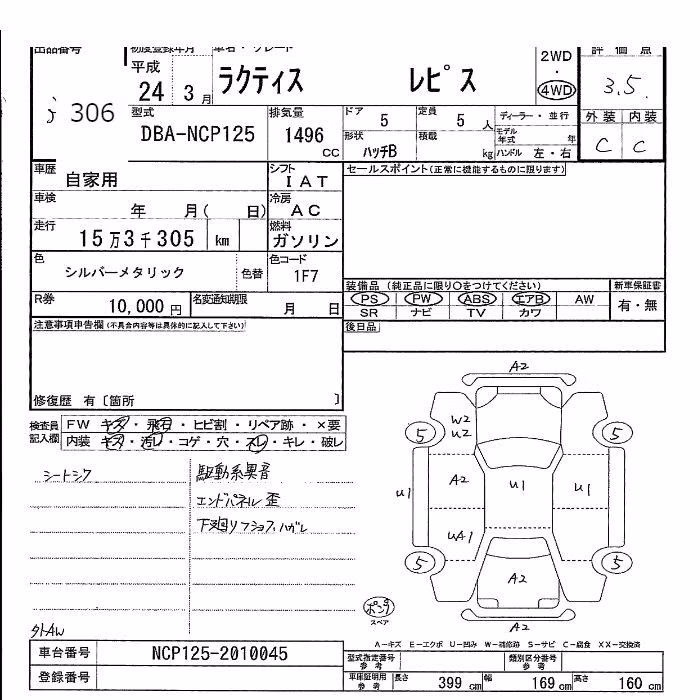 出品番号 初度登録年月 車名・グレード 2WD 評価点
平成 ・
24 3月 ラクティス レピス 4WD 3.5
306 型式 排気量 ドア 定員 ディーラー・並行 外装 内装
DBA-NCP125 1496 CC 5 5人 モデル年式 年 C C
形状 積載
ハッチB kg ハンドル 左・右
車歴 シフト セールスポイント(正常に機能するものに限ります)
自家用 IAT
車検 冷房
年 月( 日) AC
走行 燃料
15万3千305 km ガソリン
色 色コード
シルバーメタリック 色替 1F7 装備品 (純正品に限り○をつけてください) 新車保証書
R券 名変通知期限 PS PW ABS エアB AW 有・無
10,000円 月 日 SR ナビ TV カワ
注意事項申告欄(不具合内容等は具体的に記入して下さい) 後日品
修復歴 有〔箇所 〕
検査員記入欄 FW キズ・飛石・ヒビ割・リペア跡・×要
内装 キズ・汚レ・コゲ・穴・スレ・キレ・破レ
シートシワ 駆動系異音
エンドパネル歪
下廻りフショク、ハガレ
外AW
A2
W2
U2
5 5
U1 A2 U1 U1
UA1
5 5
A2
スペア
A2
A-キズ E-エクボ U-凹み W-補修跡 S-サビ C-腐食 XX-交換済
車台番号 NCP125-2010045 型式指定番号 参考 類別区分番号 参考
登録番号 車庫証明用 参考 長さ 399 cm 幅 169 cm 高さ 160 cm